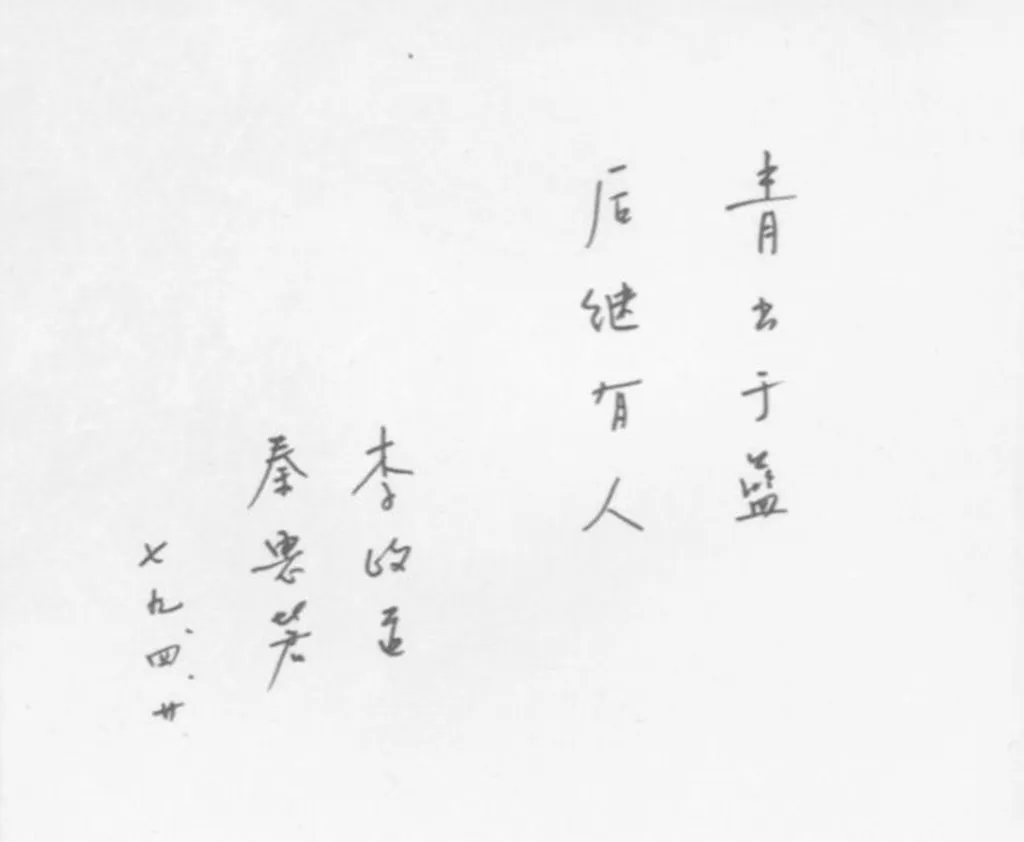 青出于蓝
后继有人
李政道
秦惠䇹
七九.四.廿